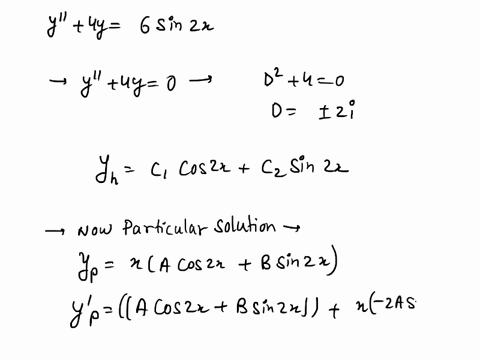 y'' + 4y = 6 Sin 2x
→ y'' + 4y = 0 → D² + 4 = 0
D = ± 2i
y_h = C₁ Cos2x + C₂ Sin 2x
→ Now Particular Solution →
y_p = x(A Cos2x + B Sin 2x)
y'_p = ((A Cos2x + B Sin 2x)) + x(-2A S